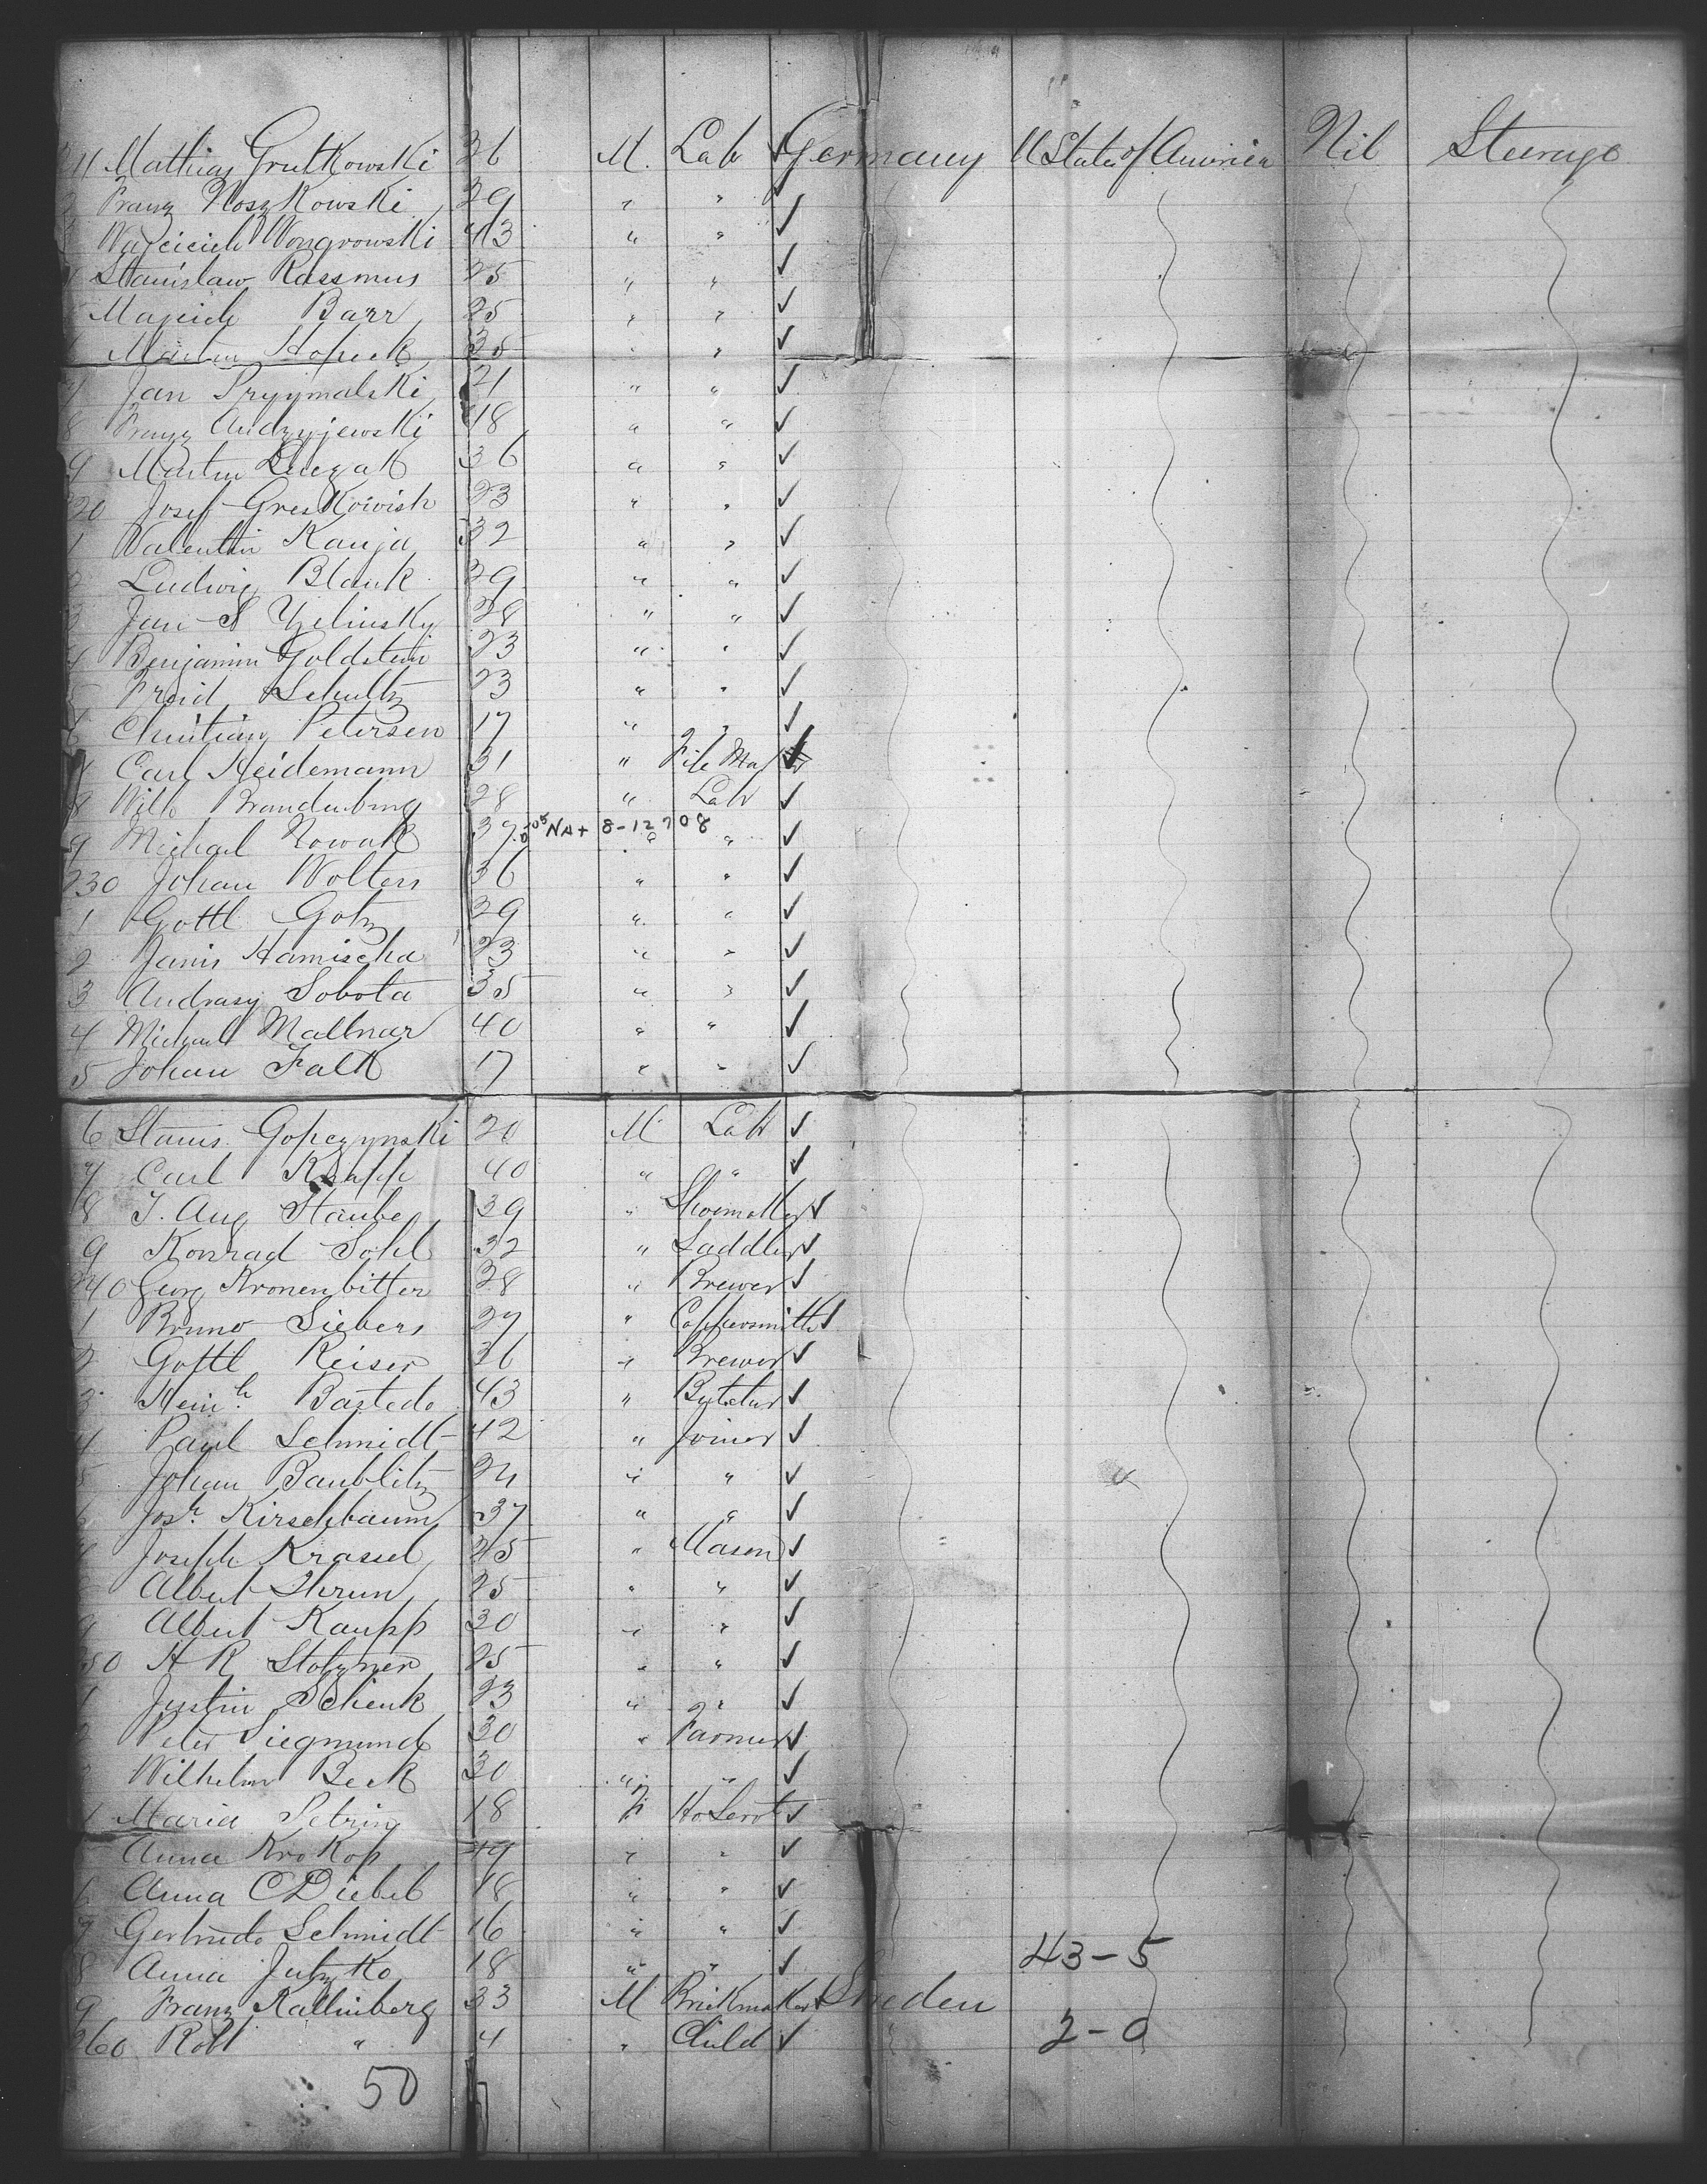 211 Mathias Grutkowski 26 M. Lab ✓ Germany U State of America Nil Steerage
2 Franz Noszkowski 29 " " ✓
3 Wojciech Wongrowski 43 " " ✓
4 Stanislaw Rassmus 25 " " ✓
5 Majcich Barr 25 " " ✓
6 Martin Hopeck 35 " " ✓
7 Jan Pryymalski 21 " " ✓
8 Franz Andzyjewski 18 " " ✓
9 Martin 36 " " ✓
220 Josef Greskowish 23 " " ✓
1 Valentin Kanja 32 " " ✓
2 Ludwig Blank 29 " " ✓
3 Jan S 28 " " ✓
4 Benjamin Goldstein 23 " " ✓
5 Freid Schultz 23 " " ✓
6 Christian Petersen 17 " " ✓
7 Carl Heidemann 31 " File Ma ✓
8 Wilh Brandenburg 28 " Lab ✓
9 Michael Nowak 37 505 NAt 8-12708 " " ✓
230 Johan Wolters 36 " " ✓
1 Gottl Gotz 29 " " ✓
2 Janis Hamischa 23 " " ✓
3 Andrasy Sobota 35 " " ✓
4 Michael Mallnar 40 " " ✓
5 Johan Falk 17 " " ✓
6 Stanis. Gopczynski 20 M Lab ✓
7 Carl Knapp 40 " " ✓
8 J. Aug Staube 39 " Shoemaker ✓
9 Konrad Sohl 32 " Saddler ✓
240 Georg Kronenbitter 28 " Brewer ✓
1 Bruno Siebers 27 " Coppersmith ✓
2 Gottl Reiser 26 " Brewer ✓
3 Heinh. Bastedo 43 " Butcher ✓
4 Paul Schmidt 42 " Joiner ✓
5 Johan Baublitz 24 " " ✓
6 Josh. Kirschbaum 37 " " ✓
7 Joseph Krassel 25 " Mason ✓
8 Albert Thrun 25 " " ✓
9 Albert Kaupp 30 " " ✓
250 H R Stotzner 25 " " ✓
1 Justin Schenk 23 " " ✓
2 Peter Siegmund 30 " Farmer ✓
3 Wilhelm Beck 30 " " ✓
4 Maria 18 F HoServt ✓
5 Anna Krokop 49 " " ✓
6 Anna C Diebel 18 " " ✓
7 Gertrude Schmidt 16 " " ✓
8 Anna Jutzko 18 " " ✓ 43-5
9 Franz Kallinberg 33 M Brickmaker ✓ Sweden
260 Robt " 4 " Child ✓ " 2-0
50